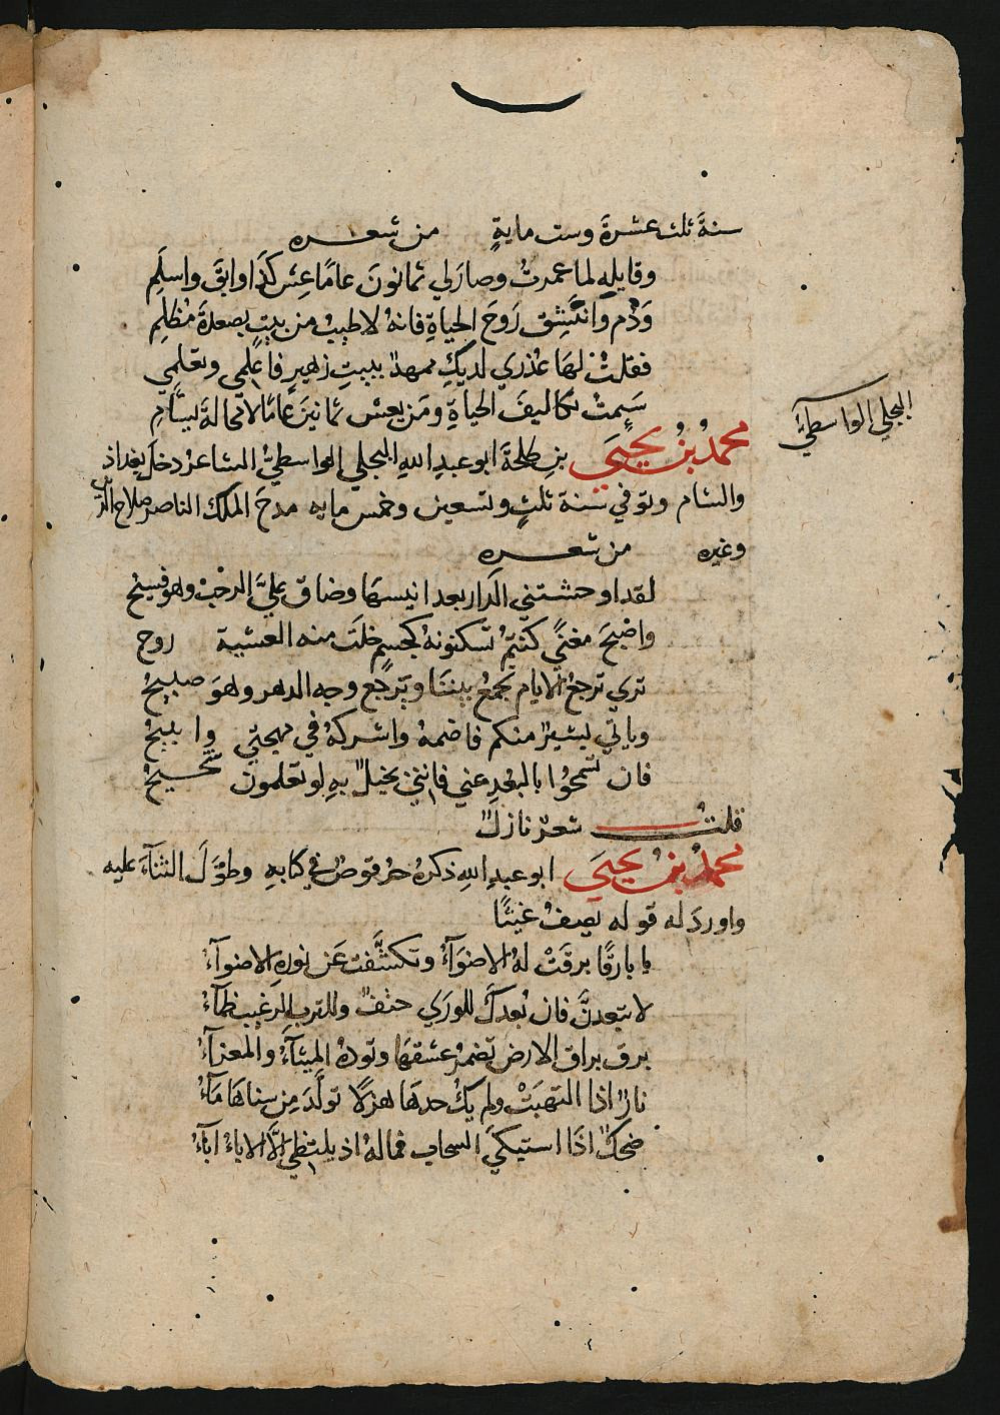 سنةَ ثلث عشرةَ وست مايةٍ من شعره
وقايلهٍ لما عمرتُ وصار لي ثمانونَ عامًا عِش كَذا وابقَ واسلَمِ
وَدُم وانتَشِق رَوحَ الحياةِ فانهُ لاطيبُ من بيتٍ بصعدةَ مُظلِمِ
فقلتُ لهَا عُذري لديكِ ممهدٌ ببيتِ زُهيرٍ فاعلمي وتعلمي
سَيِمتُ تكاليفَ الحياةِ ومَن يعش ثمانينَ عامًا لا محالةَ يسَّامِ
محمدُ بنُ يحيَى بنِ طلحَةَ ابو عبدِ اللهِ البجلي الواسطيُّ الشاعرُ دخلَ بغداذ
البجلي الواسطيّ
والشام وتوفي سنة ثلثٍ وتسعين وخمس مايه مدحَ الملك الناصر صلاح الدين
وغيره من شعره
لقد اوحشتني الدار بعد انيسهَا وضاق عليَّ الرحبُ وهو فسيح
واضحَ مغنًى كنتمُ تسكنونهُ كجسمٍ خلَت منه العشية روح
تري ترجعُ الايام تجمعُ بيننَا ويرجع وجه الدهر وهوَ صبيحُ
وياتي بشيرٌ منكم فاضمهُ واشركهُ في مهجتي وابيحُ
فان تسمحُوا بالبُعدِ عني فانني بخيلٌ بهِ لو تعلمون شَحيحُ
قلتُ شعرٌ نازلٌ
محمدُ بنُ يحيَى ابو عبدِ اللهِ ذكرهُ حُرقوصٌ في كتابهِ وطوَّلَ الثنآءَ عليه
واوردَ له قوله يصفُ غيثًا
يا بارقًا برقَتْ لهُ الاضوَآءُ وتكشَّفت عَن نورهِ الاضوآءُ
لا تبعدنَّ فان بُعدكَ للورَي حتفٌ وللترب الرغيب ظمآءُ
برق براق الارض تضمرُ عشقهَا وتودهُ الميثآءُ والمعزآءُ
نارٌ اذا التهبَتْ ولم يكُ حدهَا هزلًا تولَّدَ مِن سناهَا مَآءُ
ضحكٌ اذَا استبكيَ السحاب فما لهُ اذ يلتظي الَّا الاباءُ اباءُ